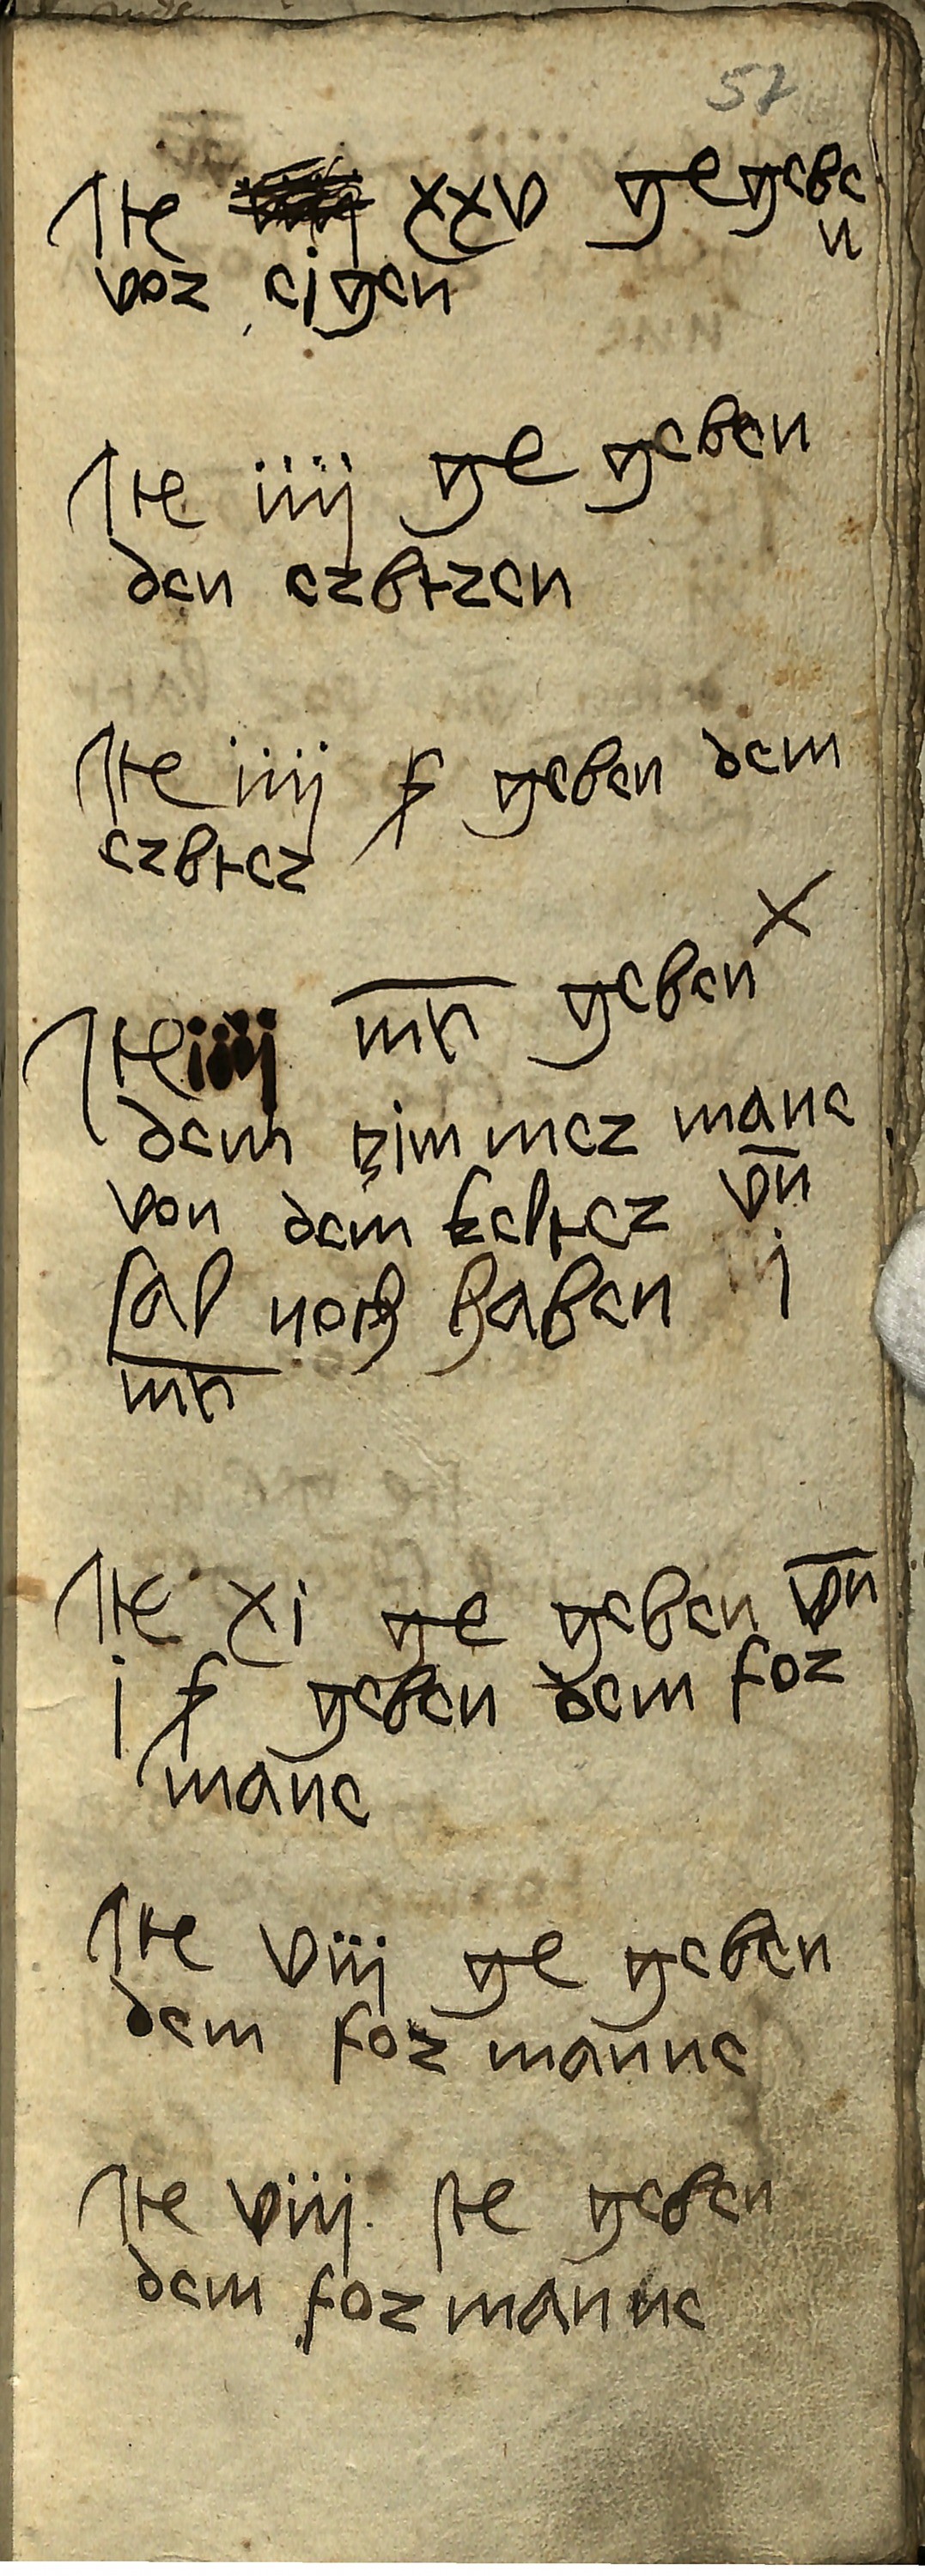 57
Ite xxv ge gebe
n
vor eigen
Ite iiij ge geben
den erbtren
Ite iiij f geben dem
erbter
x
Ite iiij mr geben
dem zimmer mane
von dem kelter vn
sal noch haben iij
mr
Ite xi ge geben vn
j f geben dem for
mane
Ite viij ge geben
dem for manne
Ite viij. ste geben
dem for manne